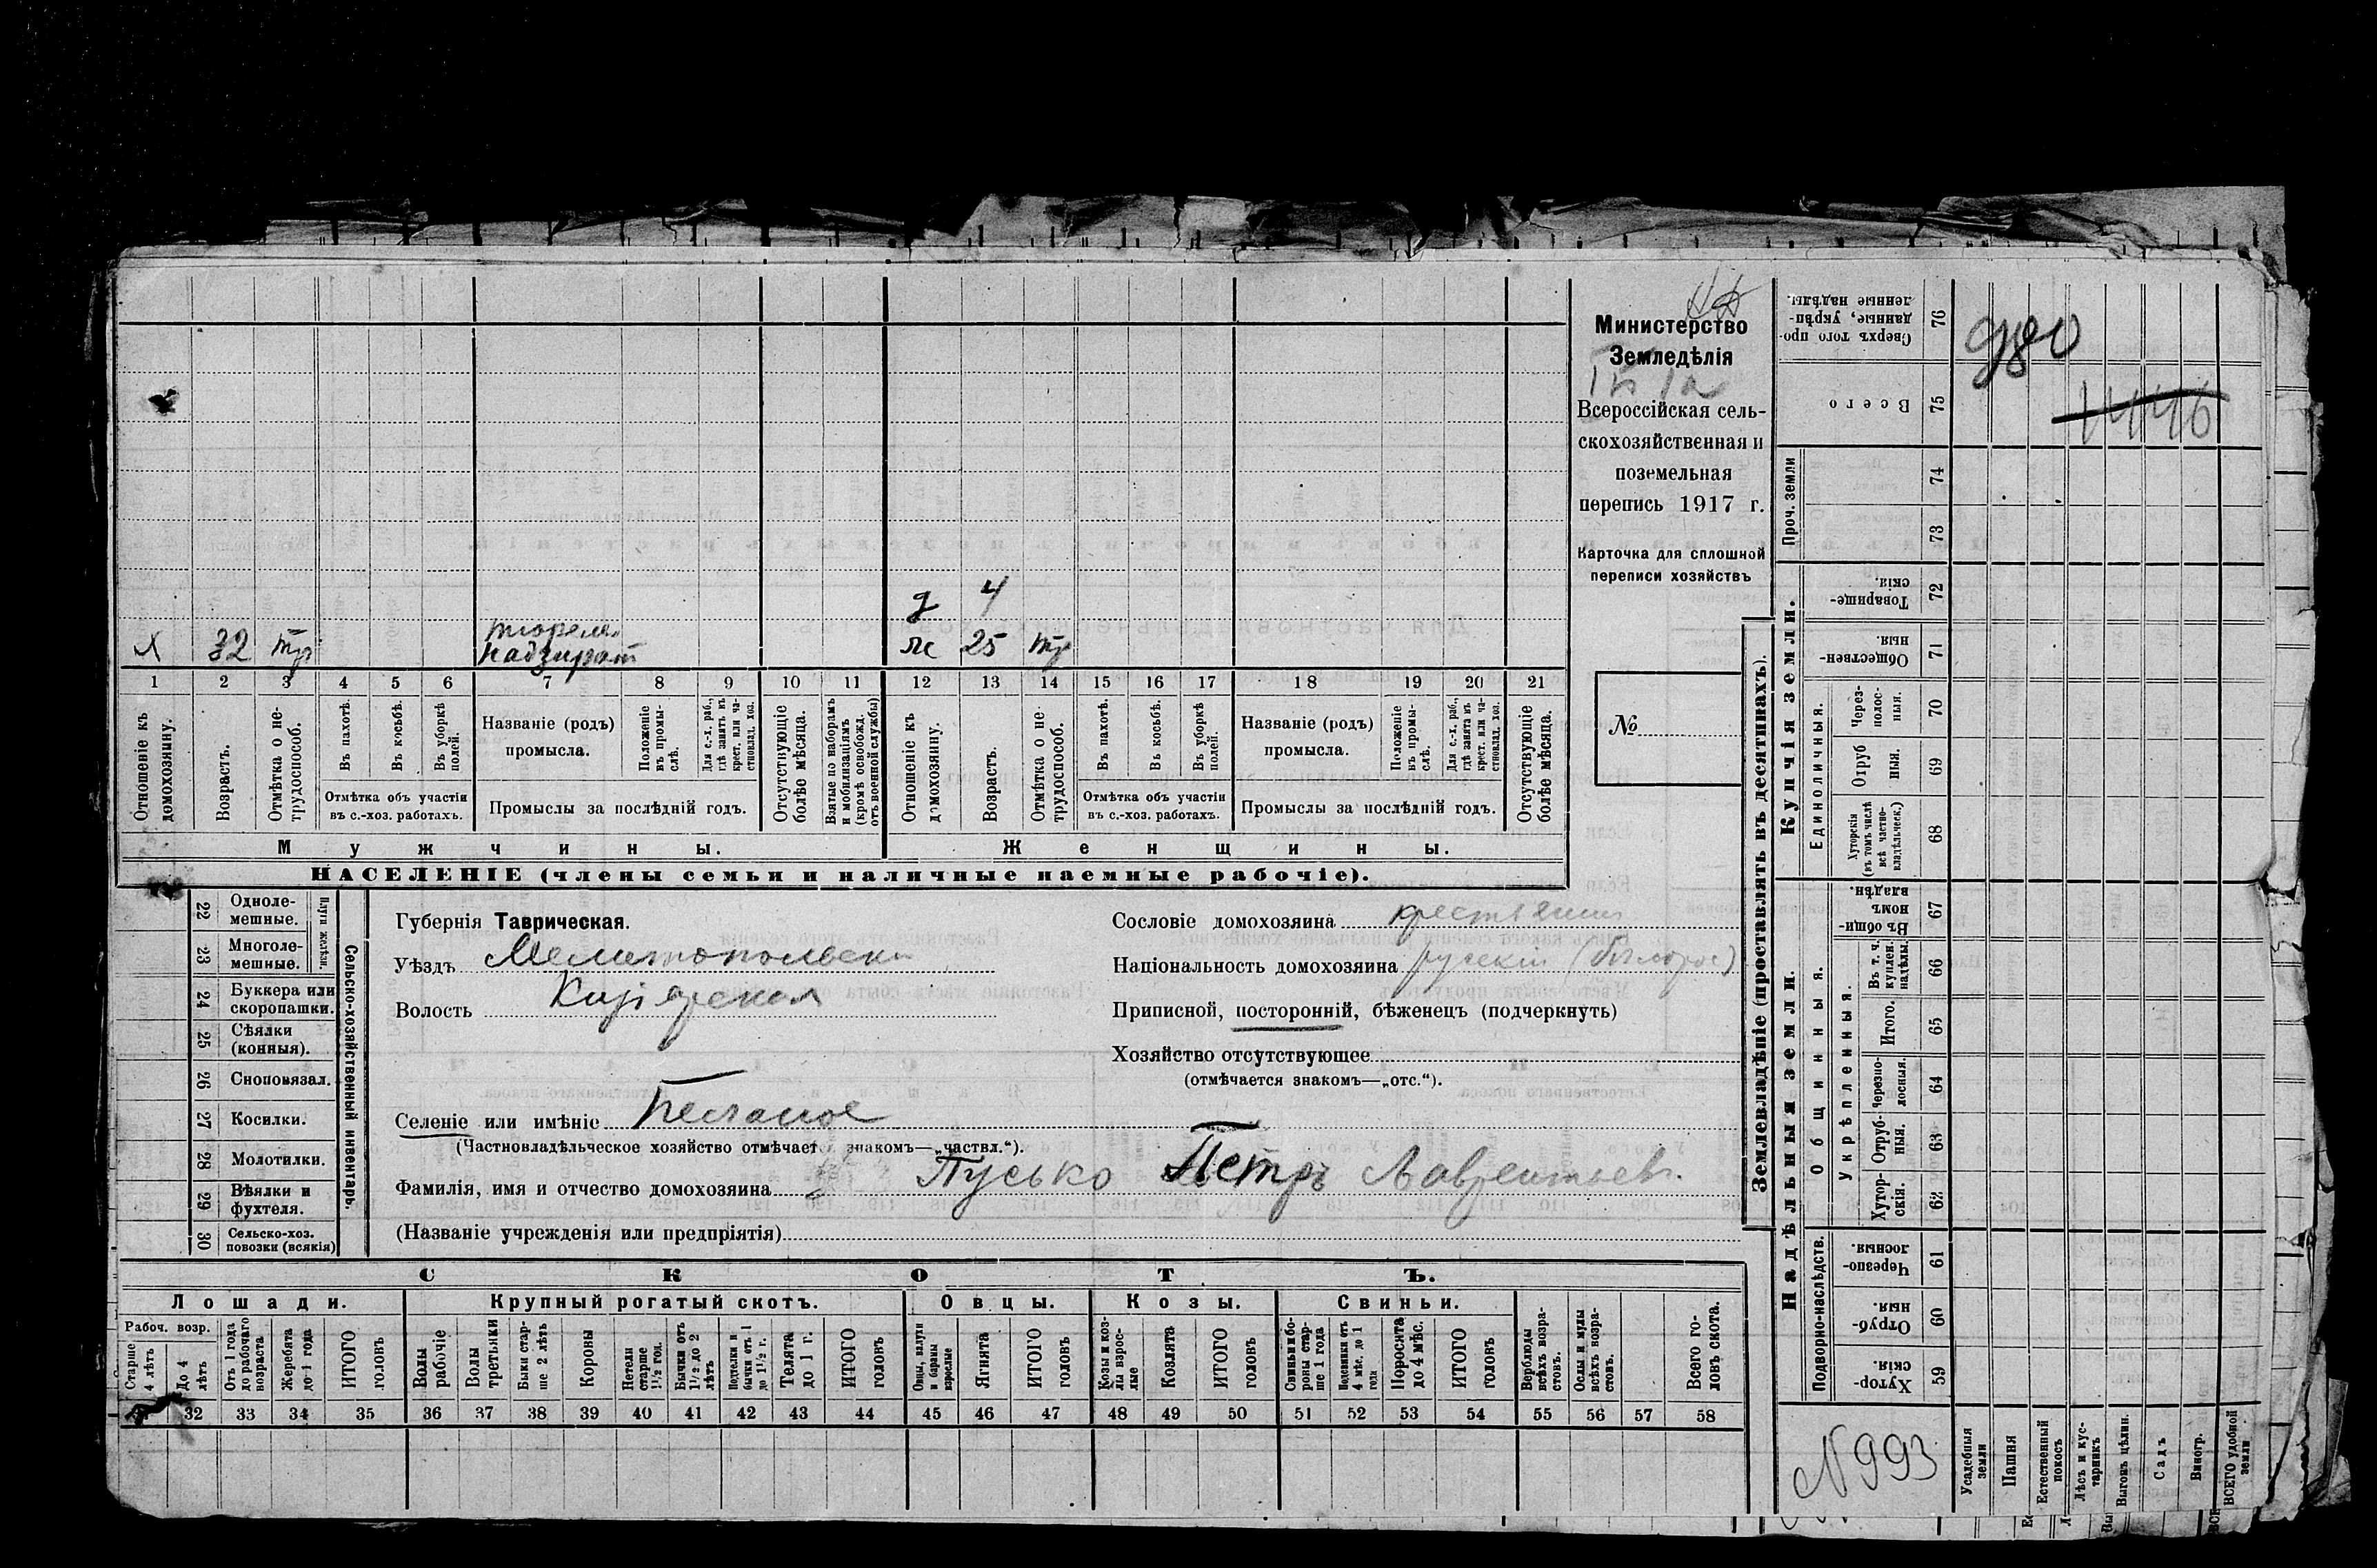 Министерство
Земледѣлія
Всероссійская сель-
скохозяйственная и
поземельная
перепись 1917 г.
Карточка для сплошной
переписи хозяйствъ
№
д 4
х 32 тр тюрем. надзират ж 25 тр
1 2 3 4 5 6 7 8 9 10 11 12 13 14 15 16 17 18 19 20 21
Отношеніе къ домохозяину.
Возрастъ.
Отмѣтка о не-трудоспособ.
Въ пахотѣ.
Въ косьбѣ.
Въ уборкѣ полей.
Отмѣтка объ участіи
въ с.-хоз. работахъ.
Названіе (родъ)
промысла.
Положеніе въ промы-слѣ.
Для с.-х. раб., гдѣ занятъ въ крест. или ча-стновлад. хоз.
Промыслы за послѣдній годъ.
Отсутствующіе болѣе мѣсяца.
Взятые по наборамъ и мобилизаціямъ (кромѣ освобожд. отъ военной службы)
Отношеніе къ домохозяину.
Возрастъ.
Отмѣтка о не трудоспособ.
Въ пахотѣ.
Въ косьбѣ.
Въ уборкѣ полей.
Отмѣтка объ участіи
въ с.-хоз. работахъ.
Названіе (родъ)
промысла.
Положеніе въ промы-слѣ.
Для с.-х. раб., гдѣ занята въ крест. или ча-стновлад. хоз.
Промыслы за послѣдній годъ.
Отсутствующіе болѣе мѣсяца.
Мужчины. Женщины.
НАСЕЛЕНІЕ (члены семьи и наличные наемные рабочіе).
22 Одноле-мешные.
23 Многоле-мешные.
Плуги желѣзн.
24 Буккера или скоропашки.
25 Сѣялки (конныя).
26 Сноповязал.
27 Косилки.
28 Молотилки.
29 Вѣялки и фухтеля.
30 Сельско-хоз. повозки (всякія)
Сельско-хозяйственный инвентарь.
Губернія Таврическая.
Уѣздъ Мелитопольскі
Волость
Селеніе или имѣніе Песчаное
(Частновладѣльческое хозяйство отмѣчает знакомъ—„частвл.“).
Фамилія, имя и отчество домохозяина Пусько Петръ Лаврентьев.
(Названіе учрежденія или предпріятія)
Сословіе домохозяина крестьянин
Національность домохозяина русскій
Приписной, посторонній, бѣженецъ (подчеркнуть)
Хозяйство отсутствующее
(отмѣчается знакомъ—„отс.“).
СКОТЪ.
Лошади. Крупный рогатый скотъ. Овцы. Козы. Свиньи.
Рабоч. возр.
Старше 4 лѣтъ
До 4 лѣтъ
Отъ 1 года до рабочаго возраста
Жеребята до 1 года
ИТОГО головъ
Волы рабочіе
Волы третьяки
Быки стар-ше 2 лѣтъ
Коровы
Нетели старше 1½ год.
Бычки отъ 1½ до 2 лѣтъ
Подтелки и бычки отъ 1 до 1½ г.
Телята до 1 г.
ИТОГО головъ
Овцы, валухи и бараны взрослые
Ягнята
ИТОГО головъ
Козы и коз-лы взрос-лые
Козлята
ИТОГО головъ
Свиньи и бо-роны стар-ше 1 года
Подсвинки отъ 4 мѣс. до 1 года
Поросята до 4 мѣс.
ИТОГО головъ
Верблюды всѣхъ возра-стовъ.
Ослы и мулы всѣхъ возра-стовъ.
Всего го-ловъ скота.
32 33 34 35 36 37 38 39 40 41 42 43 44 45 46 47 48 49 50 51 52 53 54 55 56 57 58
Землевладѣніе (проставлять въ десятинахъ).
Купчія земли.
Надѣльныя земли.
Сверхъ того про-данные, укрѣп-ленные надѣлы. 76
Всего 75
Проч. земли 74 73
Товарище-скія. 72
Обществен-ныя. 71
Единоличныя.
Через-полос-ныя. 70
Отруб ныя. 69
Хуторскія (въ томъ числѣ всѣ частно-владѣльческ.) 68
Общинныя.
Въ общи-номъ владѣн. 67
Укрѣпленныя.
Въ т. ч. куплен. надѣлы. 66
Итого. 65
Черезпо-лосныя. 64
Отруб-ныя. 63
Хутор-скія. 62
Подворно-наслѣдств.
Черезпо-лосныя 61
Отруб-ныя 60
Хутор-скія. 59
980
1446
N 993
Усадебныя земли
Пашня
Естественный покосъ
Лѣсъ и кус-тарникъ
Выгонъ цѣлин.
Садъ
Виногр.
ВСЕГО удобной земли